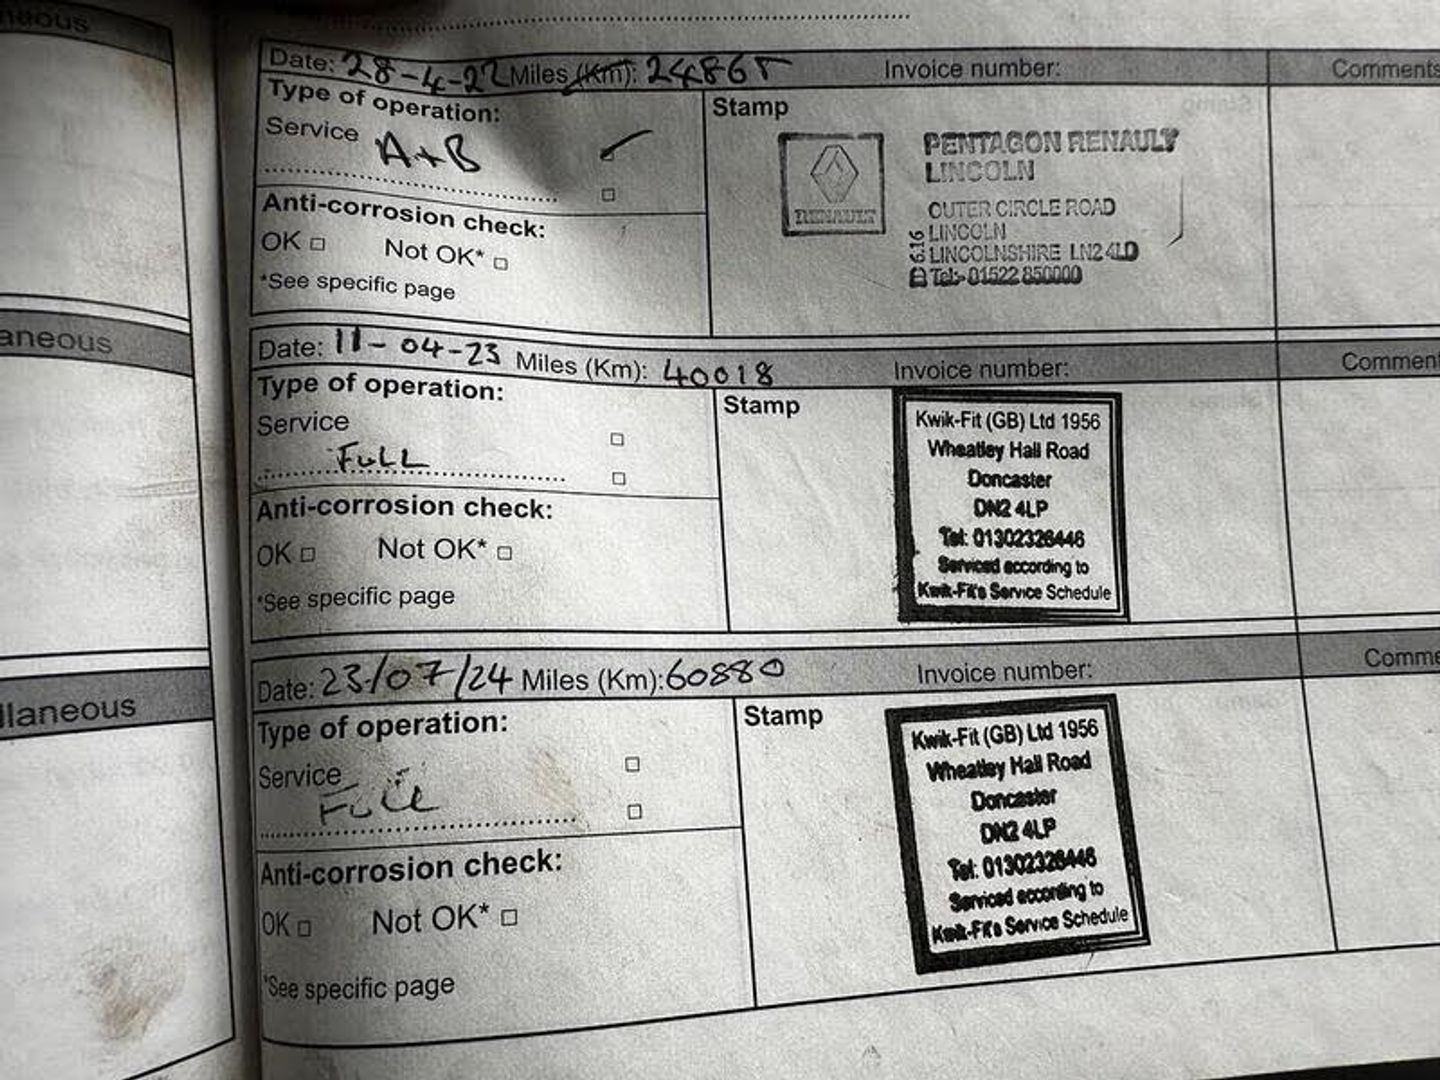 neous
Date: 28-4-22 Miles (Km): 24865 Invoice number: Comments
Type of operation:
Service A+B
Anti-corrosion check:
OK □ Not OK* □
*See specific page
Stamp
RENAULT
PENTAGON RENAULT
LINCOLN
OUTER CIRCLE ROAD
LINCOLN
LINCOLNSHIRE LN2 4LD
Tel:- 01522 850000
616
aneous
Date: 11-04-23 Miles (Km): 40018 Invoice number: Comment
Type of operation:
Service
FULL
Anti-corrosion check:
OK □ Not OK* □
*See specific page
Stamp
Kwik-Fit (GB) Ltd 1956
Wheatley Hall Road
Doncaster
DN2 4LP
Tel: 01302326446
Serviced according to
Kwik-Fit's Service Schedule
llaneous
Date: 23/07/24 Miles (Km): 60880 Invoice number: Comme
Type of operation:
Service
FULL
Anti-corrosion check:
OK □ Not OK* □
*See specific page
Stamp
Kwik-Fit (GB) Ltd 1956
Wheatley Hall Road
Doncaster
DN2 4LP
Tel: 01302326446
Serviced according to
Kwik-Fit's Service Schedule